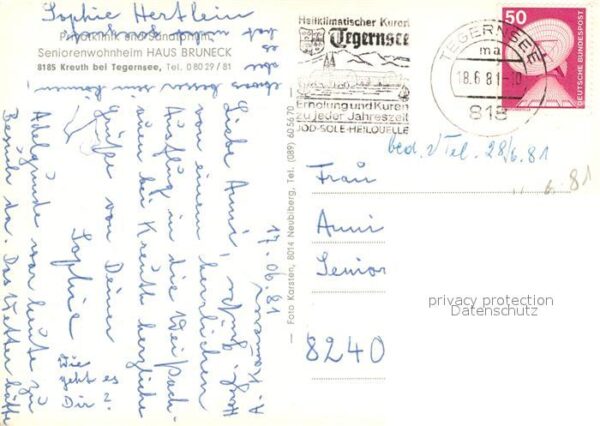 Sophie Hertlein
Privatklinik und Sanatorium
Seniorenwohnheim HAUS BRUNECK
8185 Kreuth bei Tegernsee, Tel. 0 80 29 / 81
etwas besser sein können!
17.06.81
Liebe Anni,
von einem herrlichen
Ausflug in die Weißach-
auen bei Kreuth herzliche
Grüße von Deiner
Sophie
Wie
geht es
Dir?
Adelgunde war heute zu
Besuch da. Das Wetter hätte
— Foto Karsten, 8014 Neubiberg, Tel. (089) 60 56 70 —
Heilklimatischer Kurort
Tegernsee
Erholung und Kuren
zu jeder Jahreszeit
JOD-SOLE-HEILQUELLE
TEGERNSEE
ma
18.6.81-10
818
50
DEUTSCHE BUNDESPOST
bed. Tel. 28/6.81
6.81
Frau
Anni
Senior
8240
privacy protection
Datenschutz